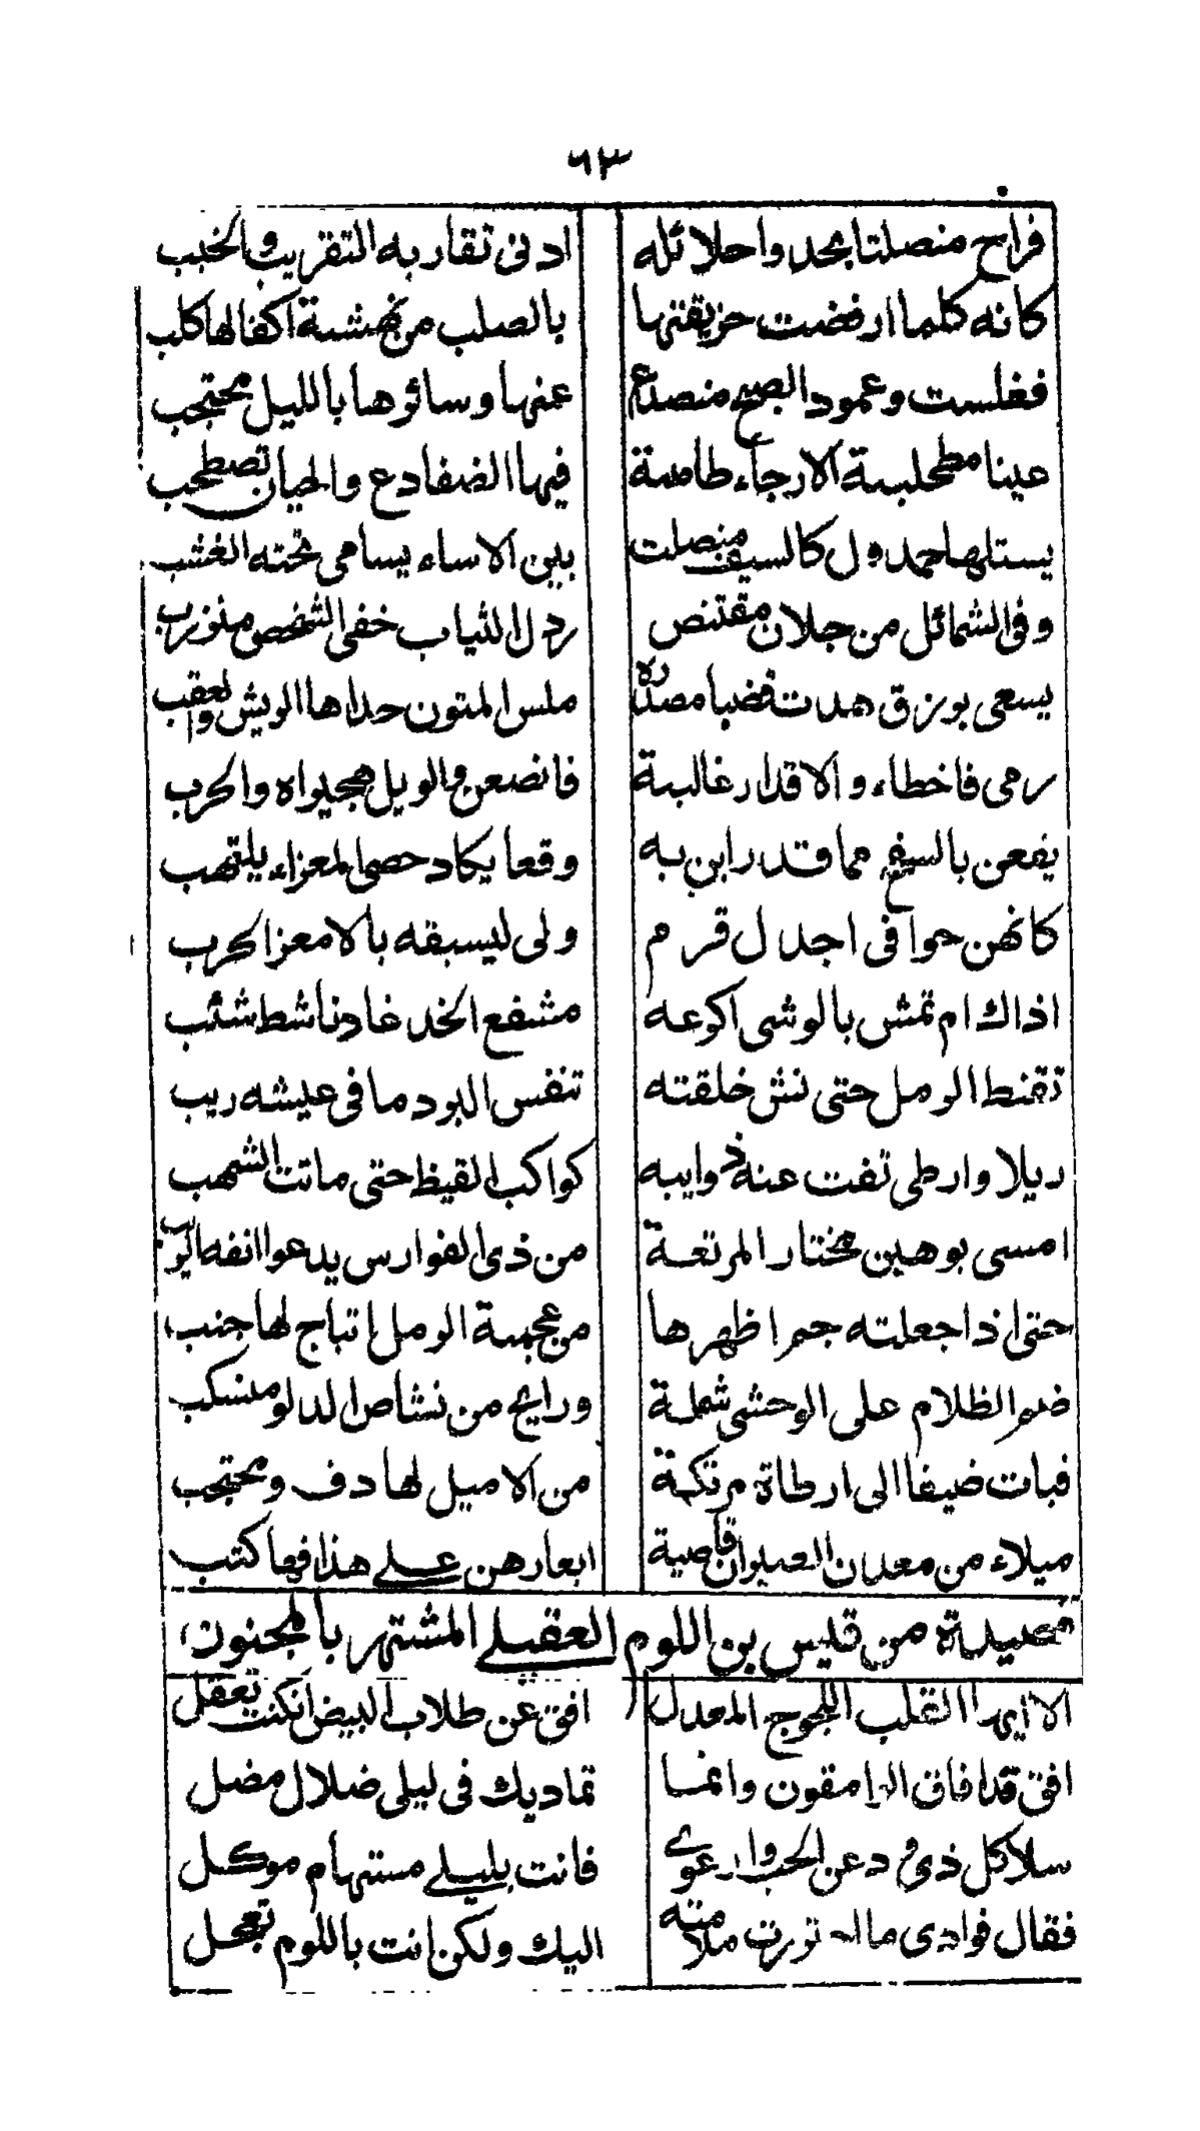 ٦٣
فراح منصلتا بحدوا حلائله ادنى تقاربه التقريب والخبب
كانه كلما ارفضت حزيقتها بالصلب من نهشة اكفالها كلب
فغلست وعمود الصبح منصدع عنها وسائرها بالليل محتجب
عينا مطحلبة الارجاء طامية فيها الضفادع والحيتان تصطحب
يستلها جدول كالسيف منصلت بين الاساء يسامى تحته العشب
وفى الشمائل من جلان مقتنص رذل الثياب خفى الشخص منزرب
يسعى بزرق هدت قضبا مصدره ملس المتون حداها الريش والعقب
رمى فاخطاء والاقدار غالبة فانصعن والويل هجيراه والحرب
يقعن بالسفح مما قد راين به وقعا يكاد حصى المعزاء يلتهب
كانهن خوافى اجدل قرم ولى ليسبقه بالامعز الخرب
اذاك ام نمش بالوشى اكرعه مسفع الخد غاد ناشط شبب
تقنط الرمل حتى نش خلفته تنفس البرد ما فى عيشه ريب
ربلا وارطى نفت عنه ذوايبه كواكب القيظ حتى ماتت الشهب
امسى بوهبين مختار المرتعة من ذى الفوارس يدعوا انفه الربب
حتى اذا جعلته جمرا ظهرها من عجمة الرمل اثباج لها جنب
ضم الظلام على الوحشى شملة ورايح من نشاص الدلو منسكب
فبات ضيفا الى ارطاة مرتكمة من الاميل لها دف ومحتجب
ميلاء من معدن الصيران قاصية ابعارهن على هذا فها كثب
قصيدة من قيس بن اللوم العقيلى المشتهر بالمجنون
الا ايها القلب اللجوج المعدل افق عن طلاب البيض ان كنت تعقل
افق قد افاق الوامقون وانما تماديك فى ليلى ضلال مضل
سلا كل ذى ود عن الحب وارعوى فانت بليلى مستهام موكل
فقال فوادى ما اجتررت ملامته اليك ولكن انت باللوم تعجل